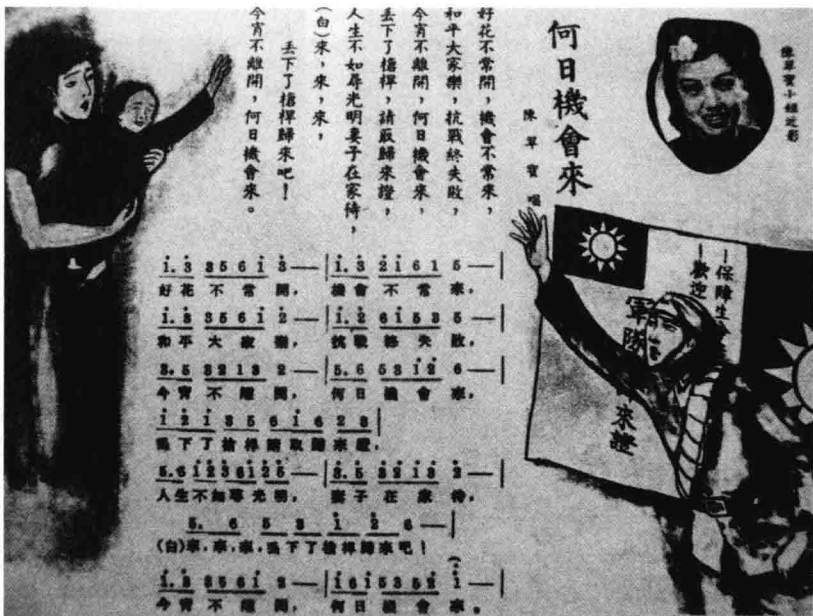 陳翠寶小姐近影
何日機會來
陳翠寶唱
好花不常開，機會不常來，
和平大家樂，抗戰終失敗，
今宵不離開，何日機會來，
丟下了槍桿，請取歸來證，
人生不如尋光明妻子在家待，
(白)來，來，來，
丟下了槍桿歸來吧！
今宵不離開，何日機會來。
—保障生
—歡迎
軍隊 來證
1. 3 3 5 6 1 3 — | 1. 3 2 1 6 1 5 — |
好花不常開， 機會不常來，
1. 3 3 5 6 1 2 — | 1. 2 6 1 5 3 5 — |
和平大家樂， 抗戰終失敗，
3. 5 3 2 1 3 2 — | 5. 6 5 3 1 2 6 — |
今宵不離開， 何日機會來，
1 2 1 3 5 6 1 6 2 3 |
丟下了槍桿請取歸來證，
5. 6 1 2 3 6 1 2 5 — | 3. 5 3 2 1 3 2 — |
人生不如尋光明， 妻子在家待，
5. 6 5 3 1 2 6 — |
(白)來，來，來，丟下了槍桿歸來吧！
1. 3 3 5 6 1 2 — | 1 6 1 5 3 5 2 1 — |
今宵不離開， 何日機會來。